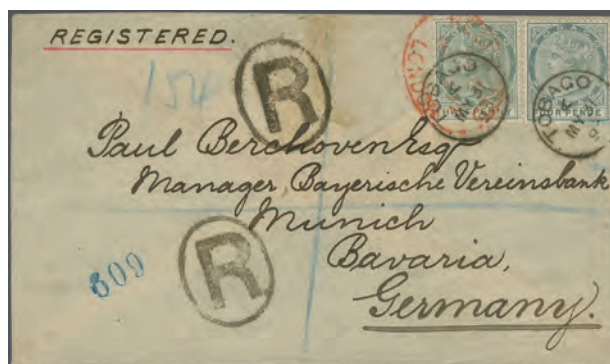 REGISTERED.
154
R
TOBAGO
TOBAGO
Paul Berchoven Esq
Manager, Bayerische Vereinsbank
Munich
Bavaria,
Germany.
R
609